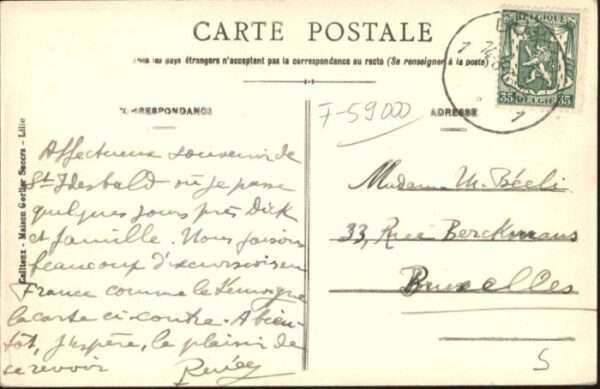 CARTE POSTALE
les pays étrangers n'acceptent pas la correspondance au recto (Se renseigner à la poste)
BELGIQUE
35 BELGIE 35
CORRESPONDANCE
ADRESSE
F-59000
Cailteux - Maison Gorlier Succrs - Lille
Affectueux souvenir de
St Idesbald où je passe
quelques jours près Dick
et famille. Nous faisons
beaucoup d'excursions en
France comme le témoigne
la carte ci-contre. A bien-
tôt, j'espère, le plaisir de
se revoir
Renée
Madame M.
33, Rue Berckmans
Bruxelles
5